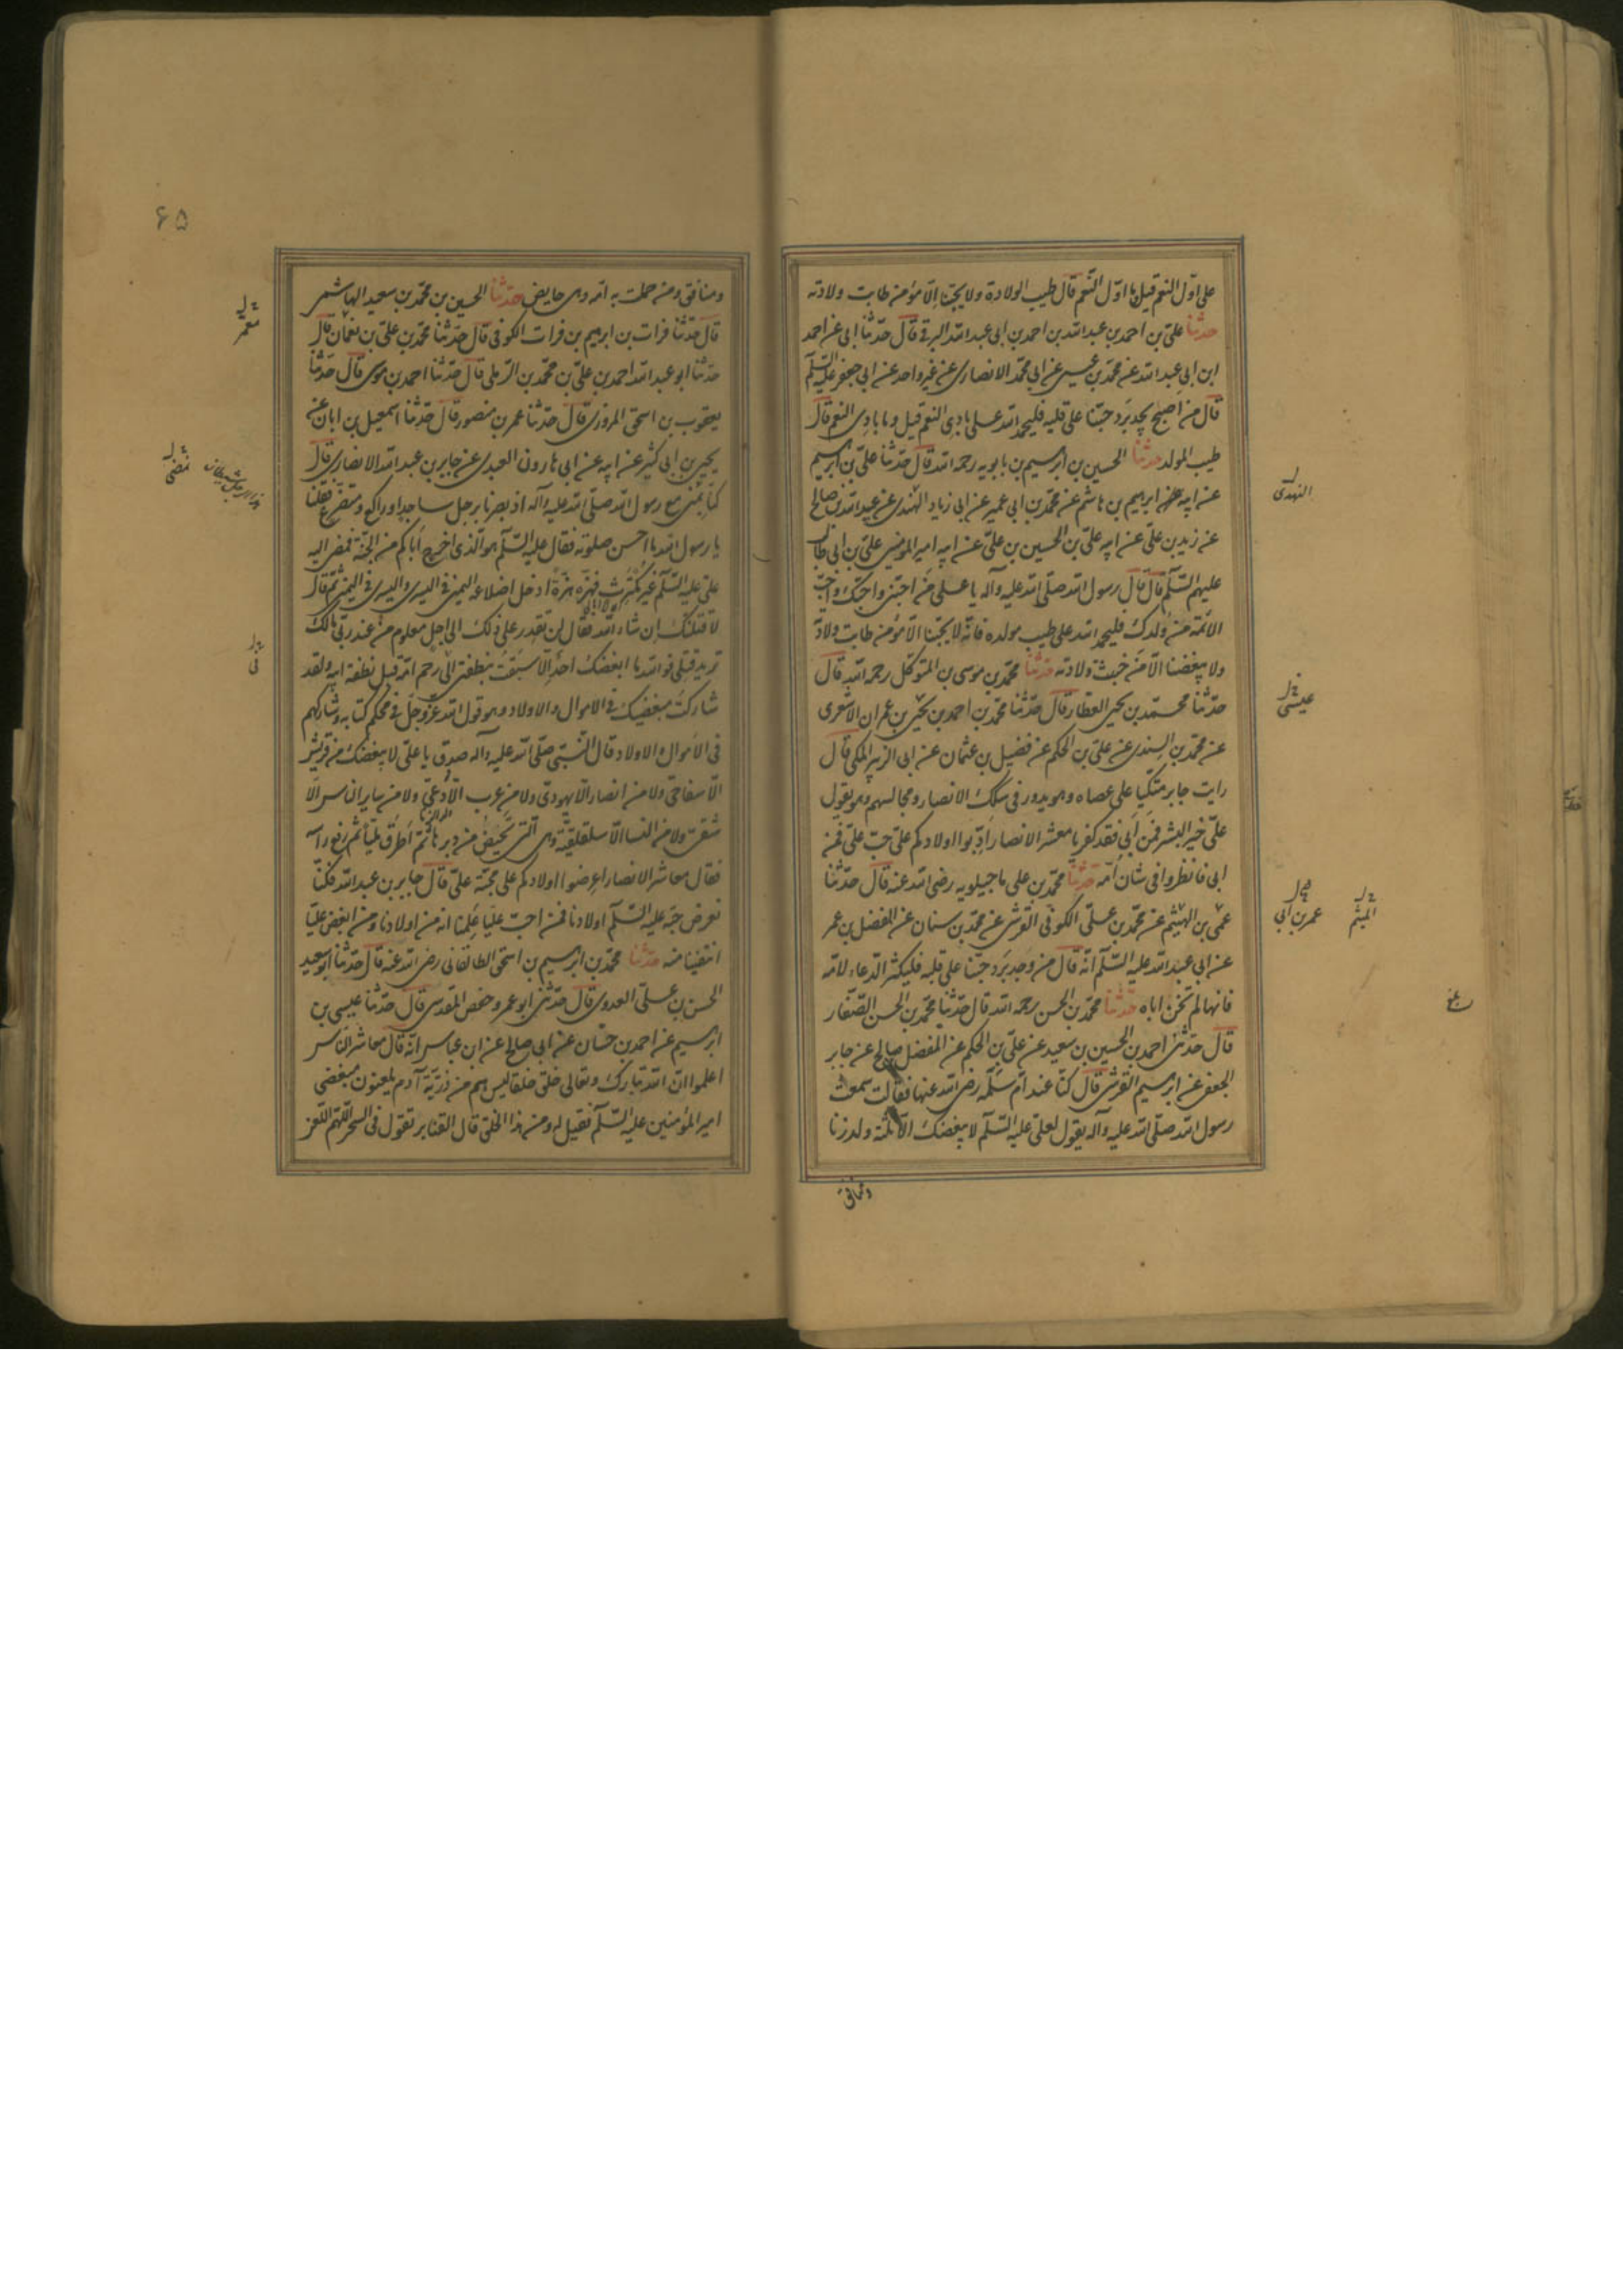 على اوّل النعم قيل وما اوّل النّعم قال طيب الولادة ولا يحبّنا الّا مؤمن طابت ولادته
حدثنا علىّ بن احمد بن عبد الله بن احمد بن ابى عبد الله البرقى قال حدّثنا ابى عن احمد
ابن ابى عبد الله عن محمّد بن عيسى عن ابى محمّد الانصارى عن غير واحد عن ابى جعفر عليه السّلم
قال من اصبح يجد برد حبّنا على قلبه فليحمد الله على بادى النعم قيل وما بادى النعم قال
طيب المولد حدثنا الحسين بن ابرهيم بن بابويه رحمه الله قال حدّثنا علىّ بن ابرهيم
عن ابيه ابراهيم بن هاشم عن محمّد بن ابى عمير عن ابى زياد النهدى عن عبيد الله بن صالح
عن زيد بن علىّ عن ابيه علىّ بن الحسين بن علىّ عن ابيه امير المؤمنين علىّ بن ابى طالب
عليهم السّلم قال قال رسول الله صلّى الله عليه وآله يا علىّ من احبّنى واحبّك واحبّ
الائمّة من ولدك فليحمد الله على طيب مولده فانّه لا يحبّنا الّا مؤمن طابت ولادته
ولا يبغضنا الّا من خبثت ولادته حدّثنا محمّد بن موسى بن المتوكّل رحمه الله قال
حدّثنا محمّد بن يحيى العطار قال حدّثنا محمّد بن احمد بن يحيى بن عمران الاشعرى
عن محمّد بن السندى عن علىّ بن الحكم عن فضيل بن عثمان عن ابى الزبير المكى قال
رايت جابر متكيا على عصاه وهو يدور فى سكك الانصار ومجالسهم وهو يقول
علىّ خير البشر فمن ابى فقد كفر يا معشر الانصار ادّبوا اولادكم على حبّ علىّ فمن
ابى فانظروا فى شان امّه حدّثنا محمّد بن على ماجيلويه رضى الله عنه قال حدّثنا
عمّى بن الهيثم عن محمّد بن علىّ الكوفى القرشى عن محمّد بن سنان عن المفضل بن عمر
عن ابى عبد الله عليه السّلم انّه قال من وجد برد حبّنا على قلبه فليكثر الدّعاء لامّه
فانها لم تخن اباه حدّثنا محمّد بن الحسن رحمه الله قال حدّثنا محمّد بن الحسن الصّفّار
قال حدّثنى احمد بن الحسين بن سعيد عن علىّ بن الحكم عن المفضل صالح عن جابر
الجعفى عن ابرهيم القرشى قال كنّا عند امّ سلمه رضى الله عنها فقالت سمعت
رسول الله صلّى الله عليه وآله يقول لعلى عليه السّلم لا يبغضك الّا ثلثة ولد زنا
ومنافق
النهدى
عيسى
عمر بن ابى
الميثم
۶۵
ومنافق ومن حملت به امّه وهى حايض حدّثنا الحسين بن محمّد بن سعيد الهاشمى
قال حدّثنا فرات بن ابرهيم بن فرات الكوفى قال حدّثنا محمّد بن علىّ بن نعمان قال
حدّثنا ابو عبد الله احمد بن علىّ بن محمّد بن الرملى قال حدّثنا احمد بن موسى قال حدّثنا
يعقوب بن اسحق المروزى قال حدّثنا عمر بن منصور قال حدّثنا اسمعيل بن ابان عن
يحيى بن ابى كثير عن ابيه عن ابى هارون العبدى عن جابر بن عبد الله الانصارى قال
كنّا بمنى مع رسول الله صلّى الله عليه وآله اذ بصرنا برجل ساجد وراكع ومتضرّع فقلنا
يا رسول الله ما احسن صلوته فقال عليه السّلم هو الّذى اخرج اباكم من الجنّة فمضى اليه
علىّ عليه السّلم غير مكترث فهزّه هزّة ادخل اضلاعه اليمنى فى اليسرى واليسرى فى اليمنى ثمّ قال
لاقتلنّك ان شاء الله فقال لن تقدر على ذلك الى اجل معلوم من عند ربّى مالك
تريد قتلى فوالله ما ابغضك احد الّا سبقت نطفتى الى رحم امّه قبل نطفة ابيه ولقد
شاركت مبغضيك فى الاموال والاولاد وهو قول الله عزّ وجل فى محكم كتابه وشاركهم
فى الاموال والاولاد قال النّبىّ صلّى الله عليه وآله صدق يا علىّ لا يبغضك من قريش
الّا سفاحىّ ولا من انصار الّا يهودىّ ولا من عرب الّا دعىّ ولا من ساير الناس الّا
شقىّ ولا من النسا الّا سلقلقيّة وهى الّتى تحيض من دبرها ثمّ اطرق مليّا ثم رفع راسه
فقال معاشر الانصار اعرضوا اولادكم على محبّة علىّ قال جابر بن عبد الله فكنّا
نعرض حبّه عليه السّلم اولادنا فمن احبّ عليّا علمنا انه من اولادنا ومن ابغض عليّا
انتفينا منه حدّثنا محمّد بن ابرهيم بن اسحق الطالقانى رضى الله عنه قال حدّثنا ابو سعيد
الحسن بن علىّ العدوى قال حدّثنى ابو عمرو حفص المقدسى قال حدّثنا عيسى بن
ابرهيم عن احمد بن حسّان عن ابى صالح عن ابن عباس انّه قال معاشر النّاس
اعلموا انّ الله تبارك وتعالى خلق خلقا ليس هم من ذرّيّة آدم يلعنون مبغضى
امير المؤمنين عليه السّلم فقيل له ومن هذا الخلق قال القنابر تقول فى السحر اللّهم العن
معمر